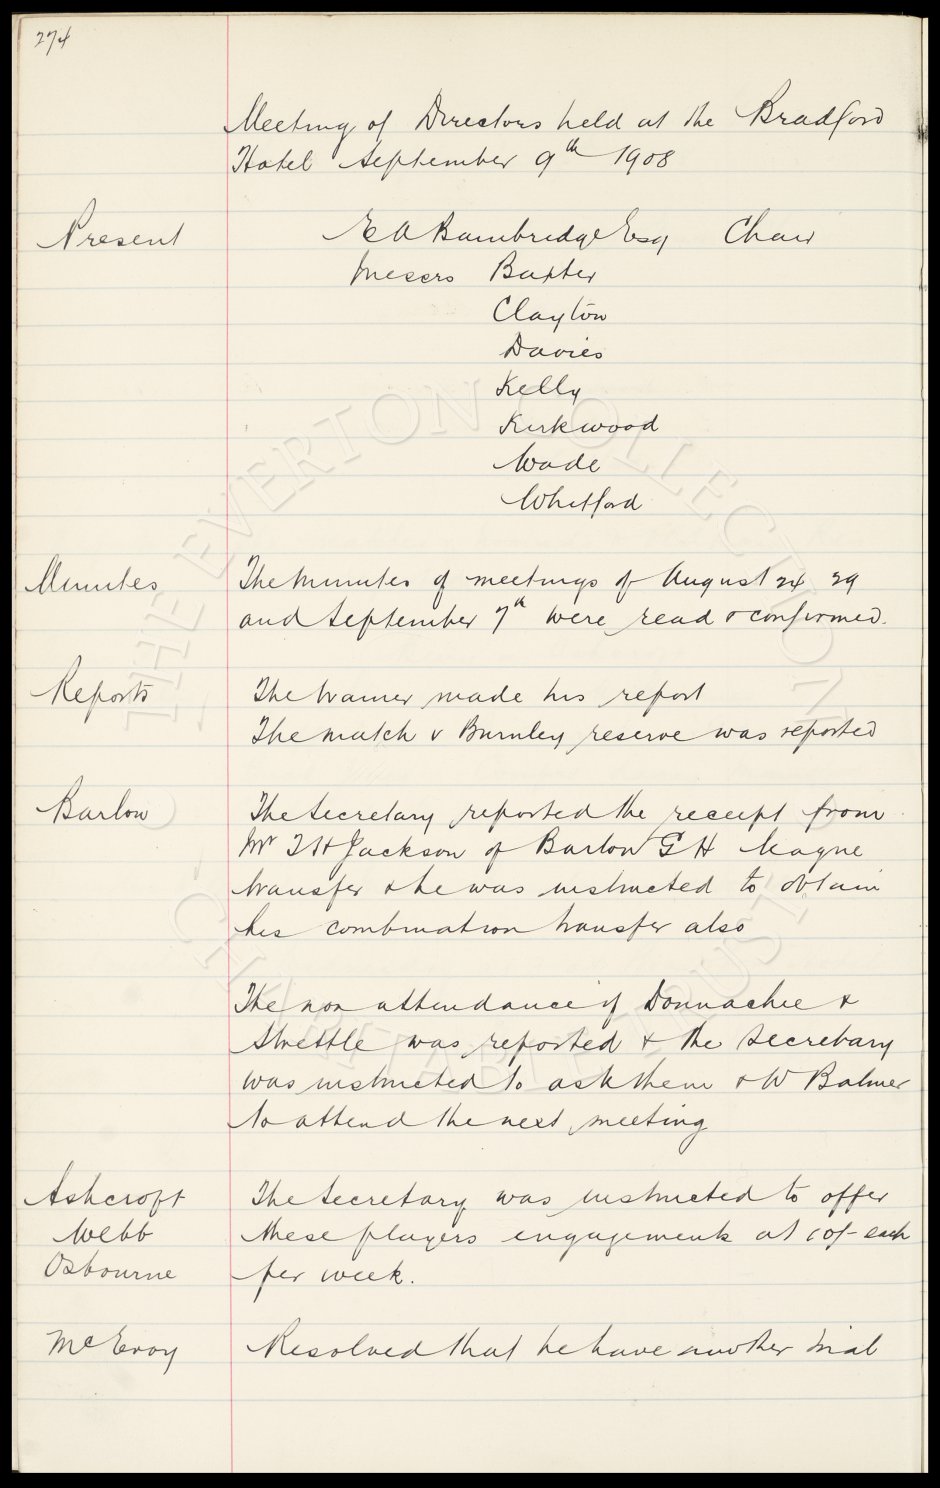 274
Meeting of Directors held at the Bradford
Hotel September 9th 1908
Present E A Bambridge Esq Chair
Messrs Baxter
Clayton
Davies
Kelly
Kirkwood
Wade
Whitford
Minutes The Minutes of meetings of August 24 29
and September 7th were read & confirmed.
Reports The trainer made his report
The match v Burnley reserve was reported
Barlow The Secretary reported the receipt from
Mr T H Jackson of Barlow G H league
transfer & he was instructed to obtain
his combination transfer also
The non attendance of Donnachie &
Strettle was reported & the Secretary
was instructed to ask them & W Balmer
to attend the next meeting
Ashcroft The Secretary was instructed to offer
Webb these players engagements at 10/- each
Osbourne per week.
McEvoy Resolved that he have another trial
THE EVERTON COLLECTION
CHARITABLE TRUST